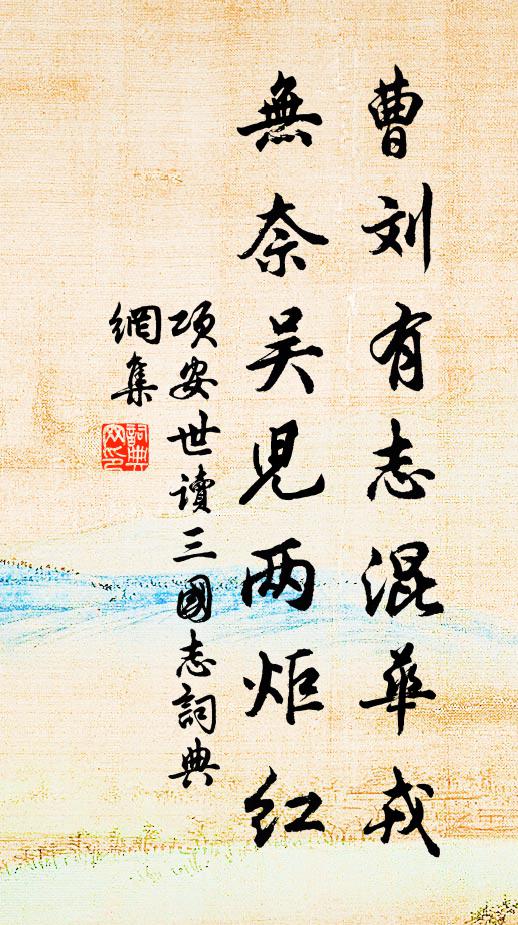 曹刘有志混華戎
無奈吴兒两炬红
项安世读三國志詞典
網集
詞典